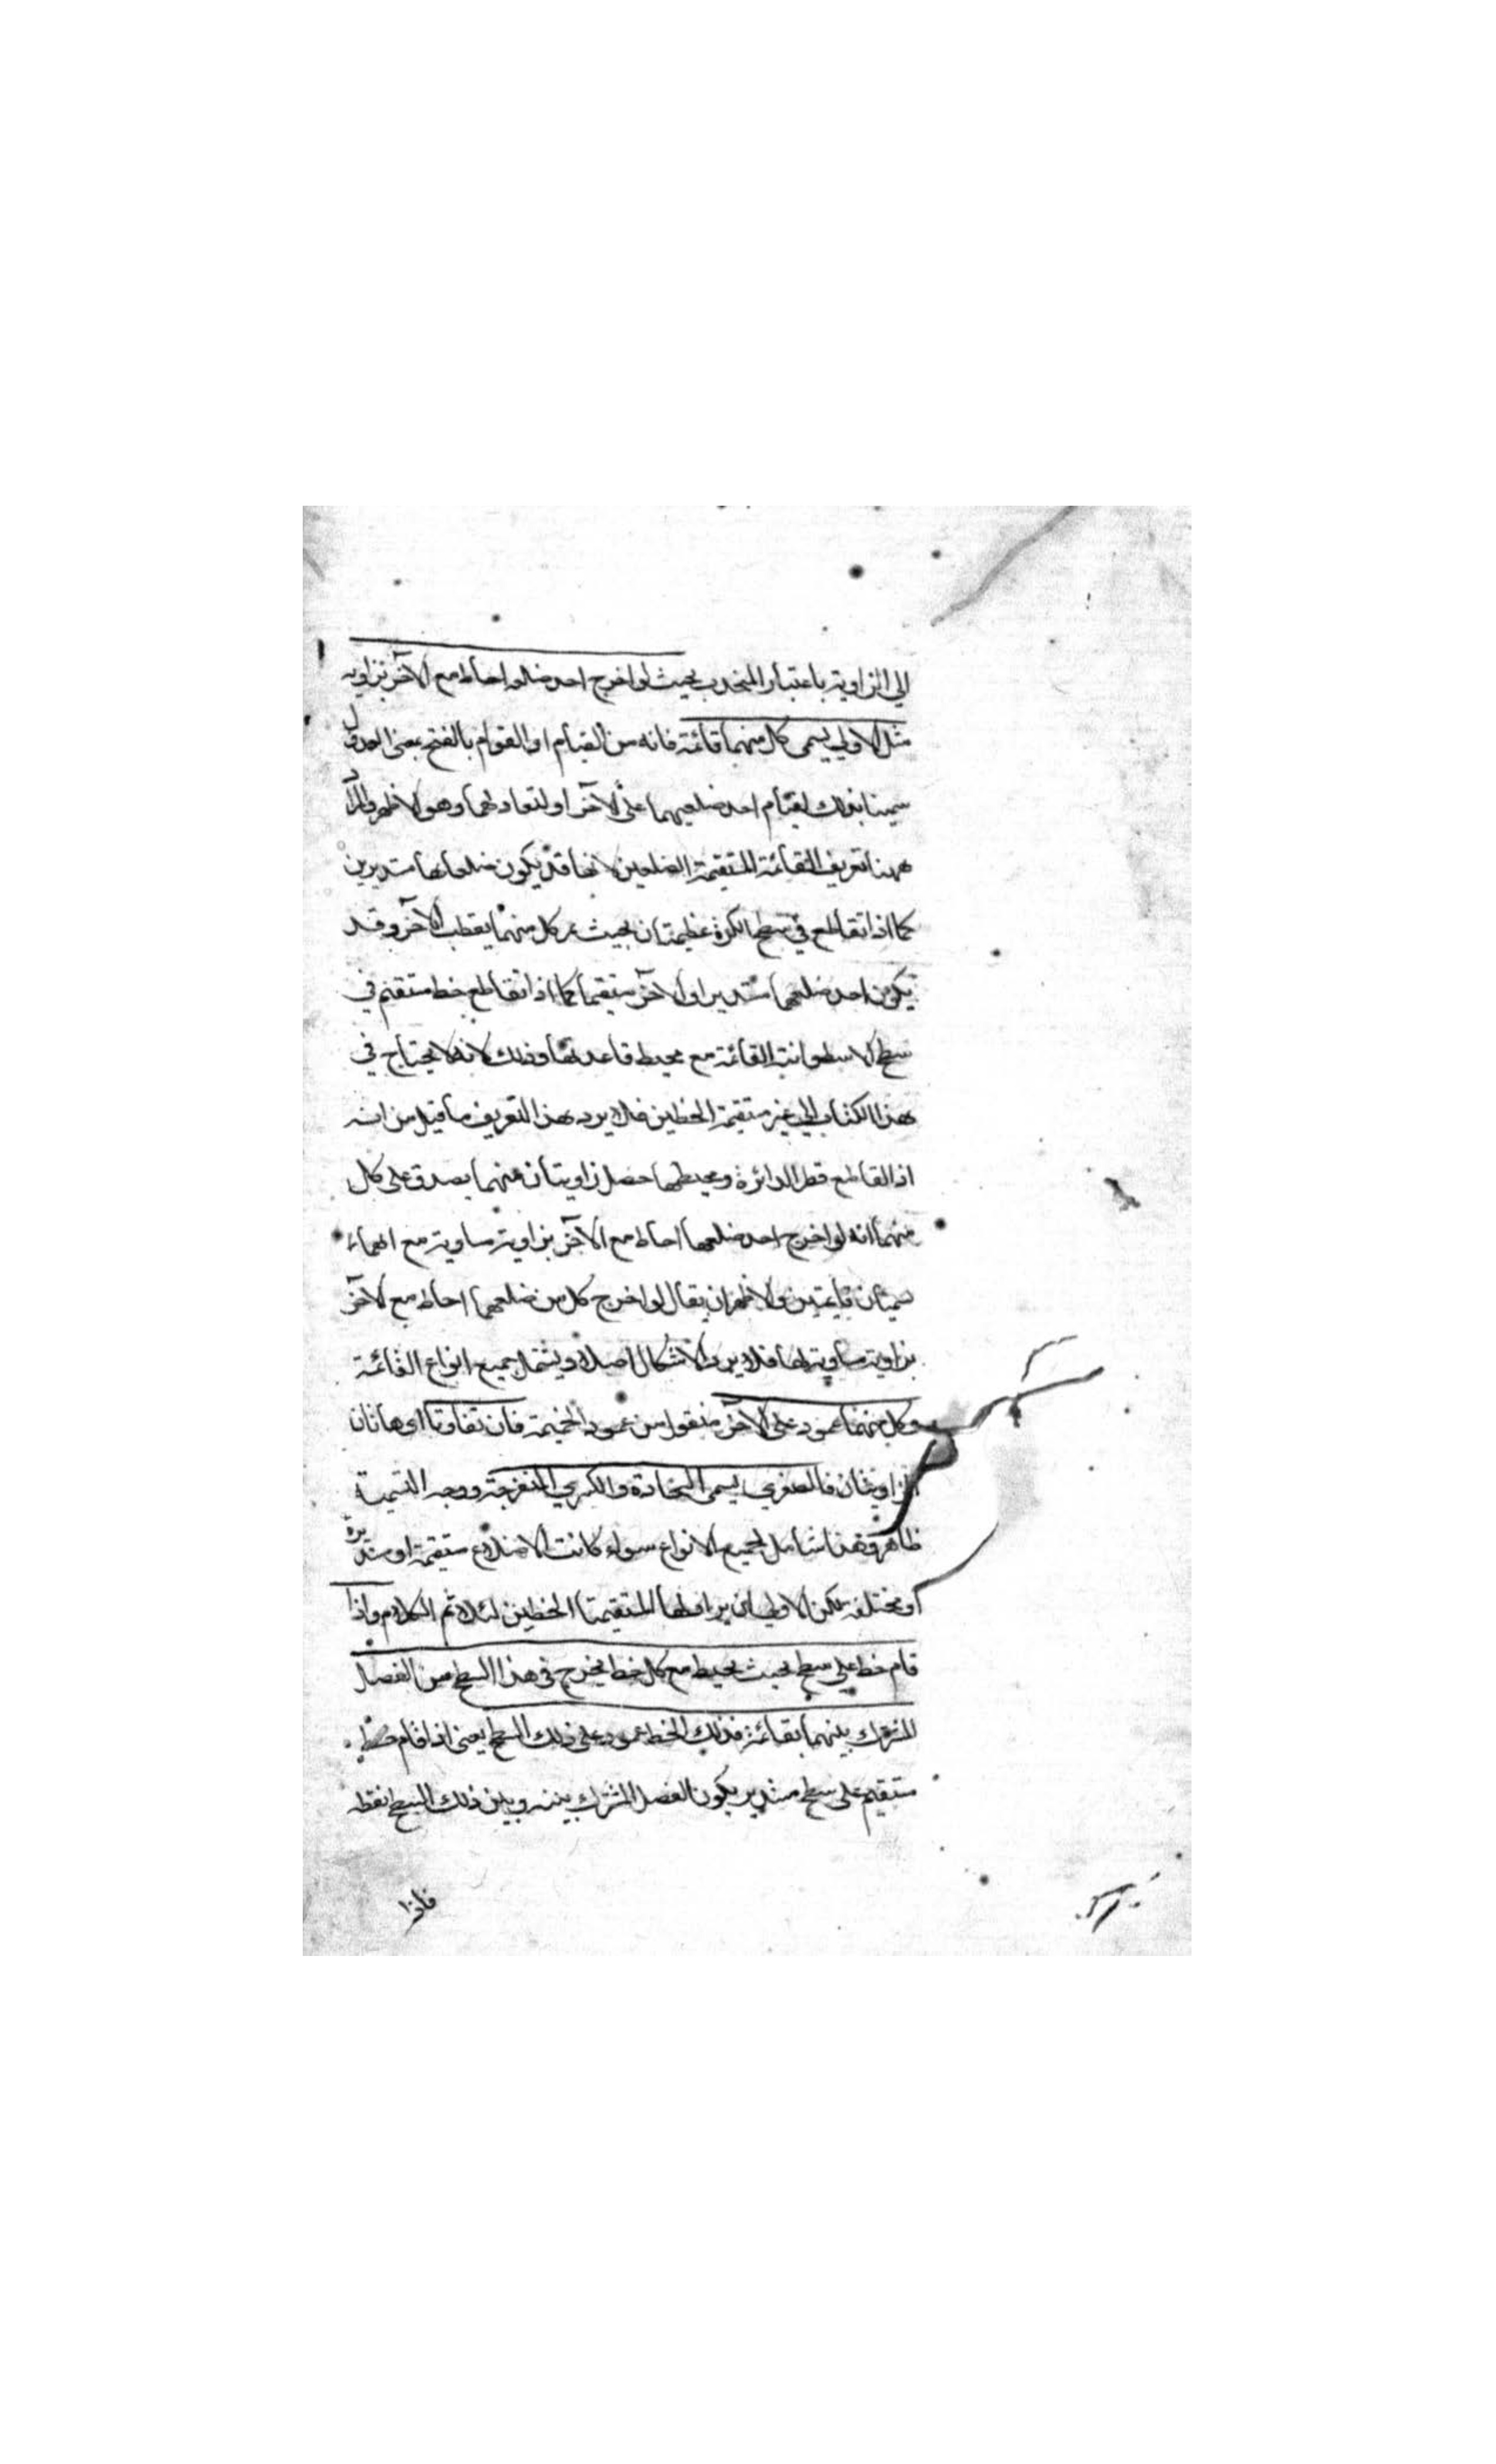 الي الزاوية باعتبار المتحدب بحيث لو اخرج احد ضلعه احاط مع الآخر بزاوية
مثل الاولي يسمي كل منهما قائمة فانه من القيام او القوام بالفتح بمعني العدل
سميتا بذلك لقيام احد ضلعيهما علي الآخر او لتعادلهما وهو الاظهر والمراد
ههنا تعريف القائمة المستقيمة الضلعين لانها قد يكون ضلعاها مستديرين
كما اذا تقاطع في سطح الكرة عظيمتان بحيث يمر كل منهما بقطب الآخر وقد
يكون احد ضلعيها مستديرا والآخر مستقيما كما اذا تقاطع خط مستقيم في
سطح الاسطوانة القائمة مع محيط قاعدتها وذلك لانه لا يحتاج في
هذا الكتاب الي غير مستقيمة الخطين فلا يرد بهذا التعريف ما قيل من انه
اذا تقاطع قطر الدائرة ومحيطها حصل زاويتان منهما يصدق علي كل
منهما انه لو اخرج احد ضلعيها احاط مع الآخر بزاوية مساوية مع انهما لا
تسميان قائمتين والاظهر ان يقال لو اخرج كل من ضلعيها احاط مع الآخر
بزاوية مساوية لها فلا يرد الاشكال اصلا ويشمل جميع انواع القائمة
وكل منهما عمود علي الآخر منقول من عمود الخيمة فان تفاوتا اي هاتان
الزاويتان فالصغري يسمي الحادة والكبري المنفرجة ووجه التسمية
ظاهر وهذا شامل لجميع الانواع سواء كانت الاضلاع مستقيمة او مستديرة
او مختلفة لكن الاولي ان يراد بها المستقيمتا الخطين لتلائم الكلام واذا
قام خط علي سطح بحيث يحيط مع كل خط يخرج في هذا السطح من الفصل
المشترك بينهما بقائمة فذلك الخط عمود علي ذلك السطح يعني اذا قام خط
مستقيم علي سطح مستدير يكون الفصل المشترك بينه وبين ذلك السطح نقطة
فاذا